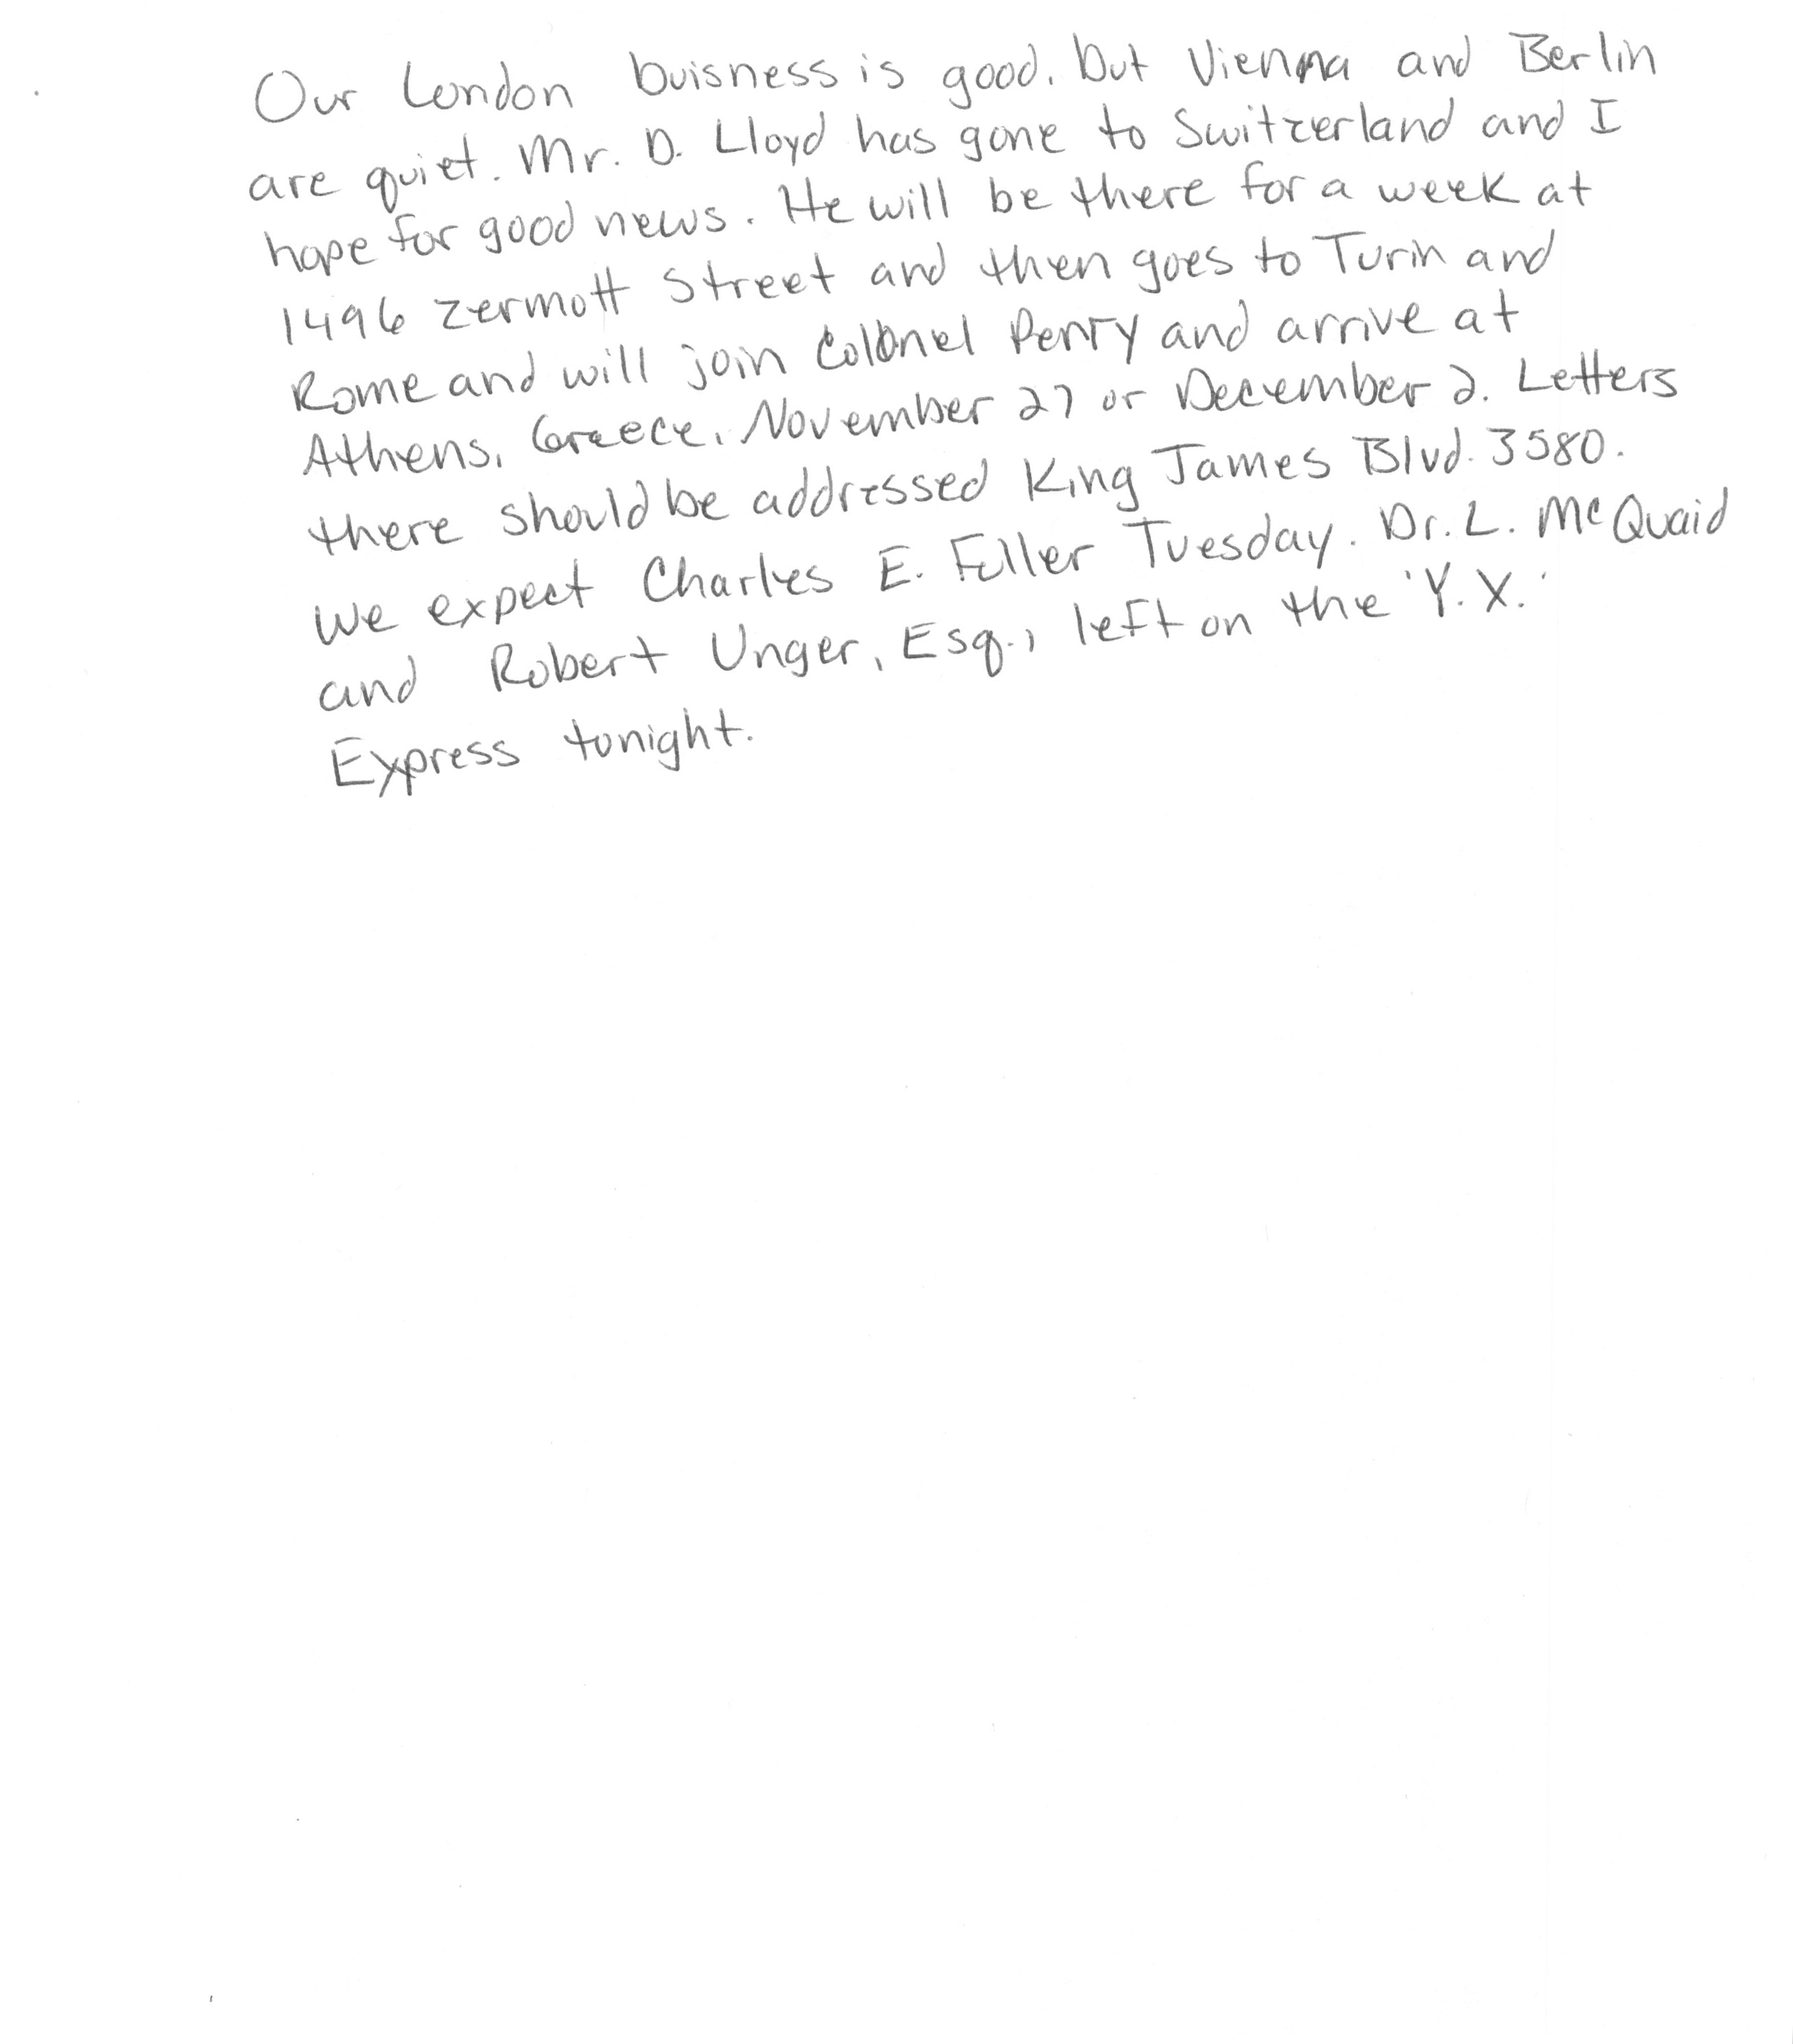 Our London buisness is good, but Vienna and Berlin
are quiet. Mr. D. Lloyd has gone to Switzerland and I
hope for good news. He will be there for a week at
1496 Zermott Street and then goes to Turin and
Rome and will join Colonel Perry and arrive at
Athens, Greece, November 27 or December 2. Letters
there should be addressed King James Blvd. 3580.
We expect Charles E. Fuller Tuesday. Dr. L. McQuaid
and Robert Unger, Esq., left on the 'Y.X.'
Express tonight.